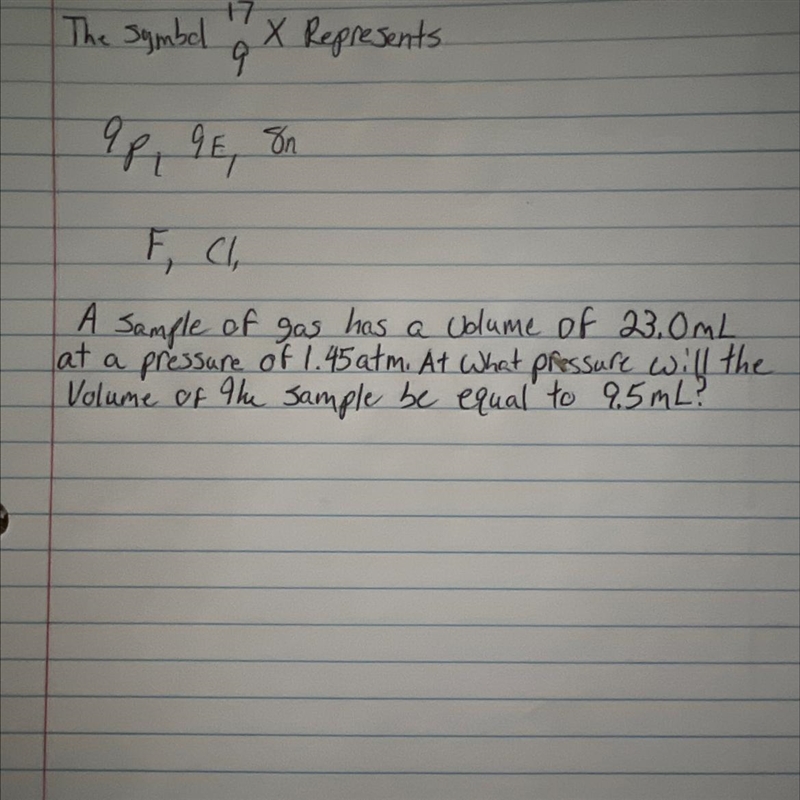 The symbol 17 9 X Represents
9p, 9E, 8n
F, Cl,
A sample of gas has a volume of 23.0mL
at a pressure of 1.45atm. At what pressure will the
Volume of the sample be equal to 9.5mL?